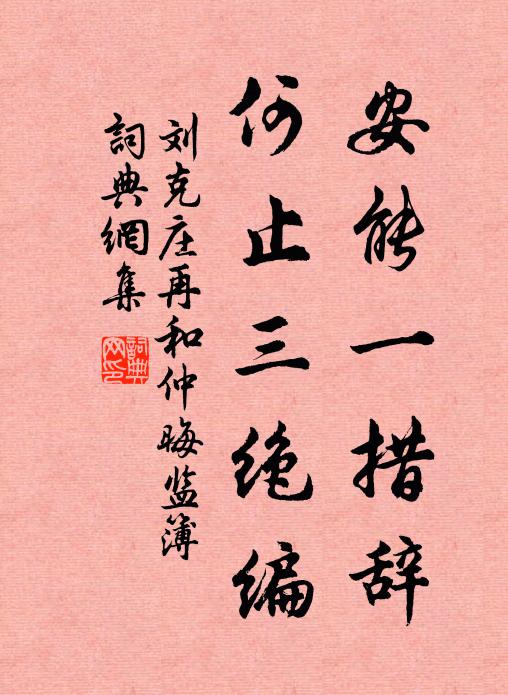 安能一措辞
何止三绝编
刘克庄再和仲晦监簿
詞典網集
詞典网印